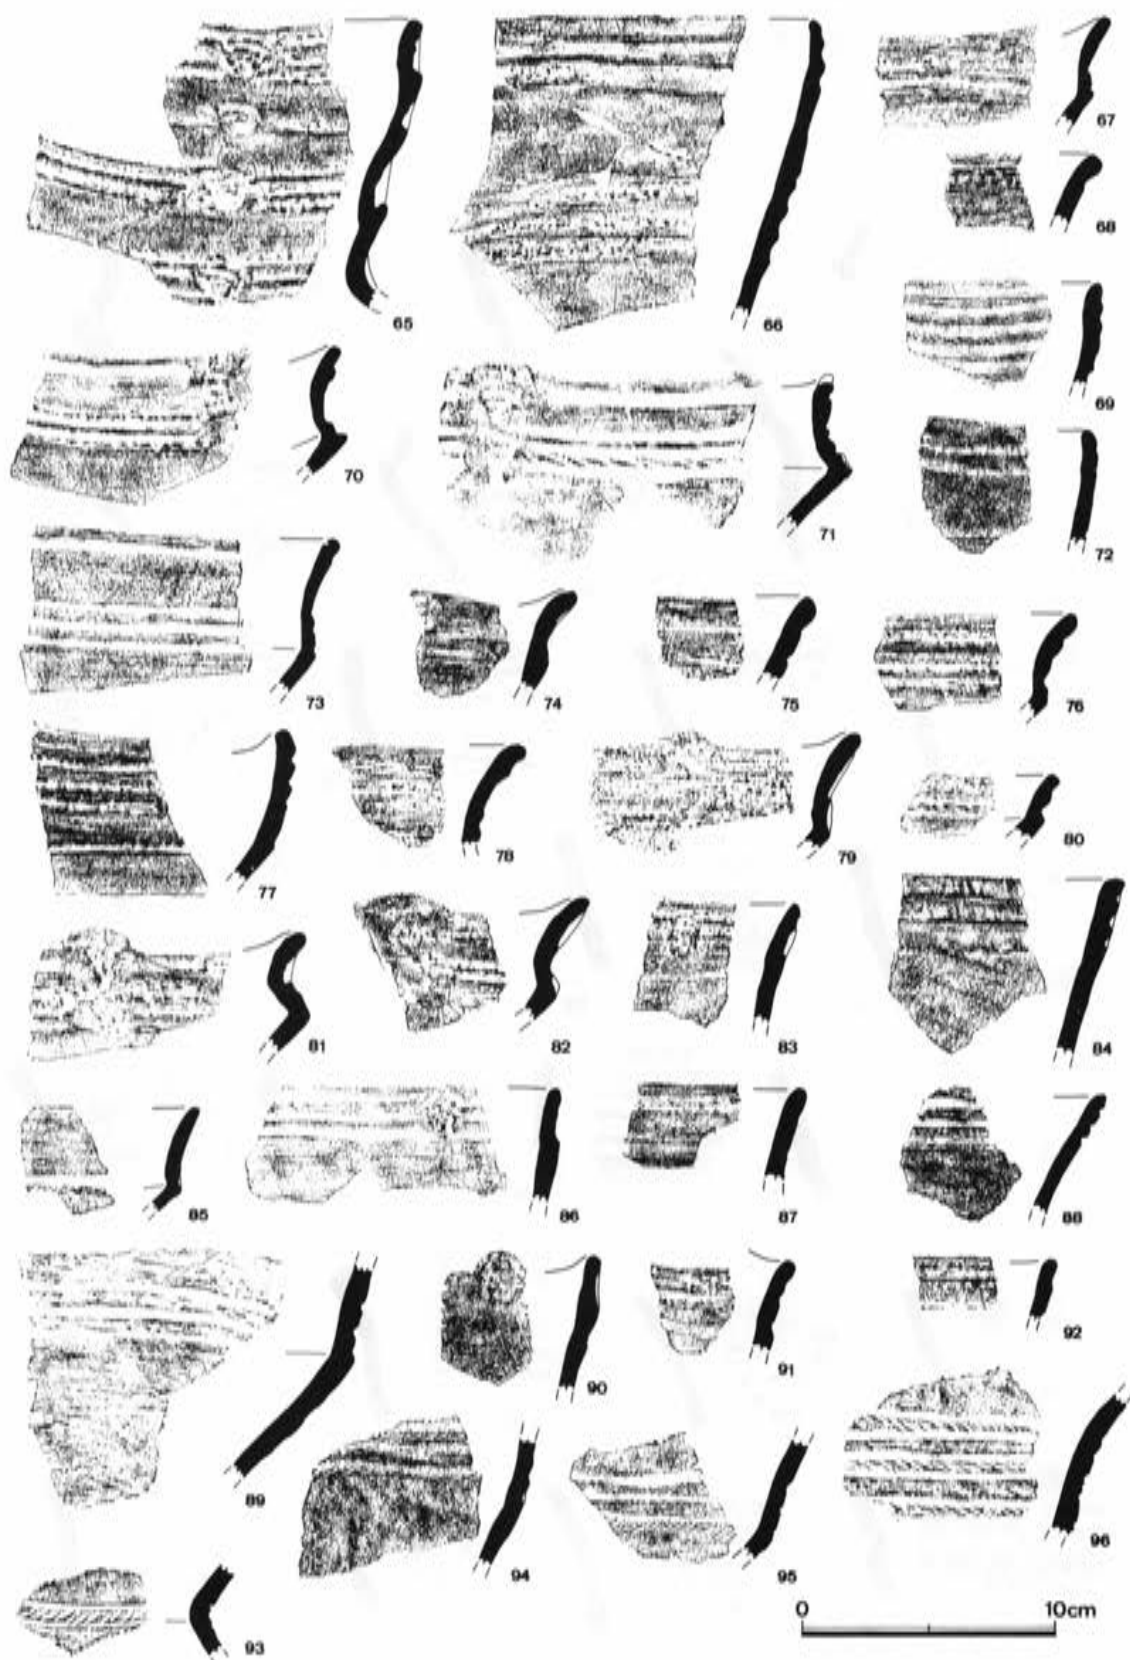 65
66
67
68
69
70
71
72
73
74
75
76
77
78
79
80
81
82
83
84
85
86
87
88
89
90
91
92
93
94
95
96
0 10cm